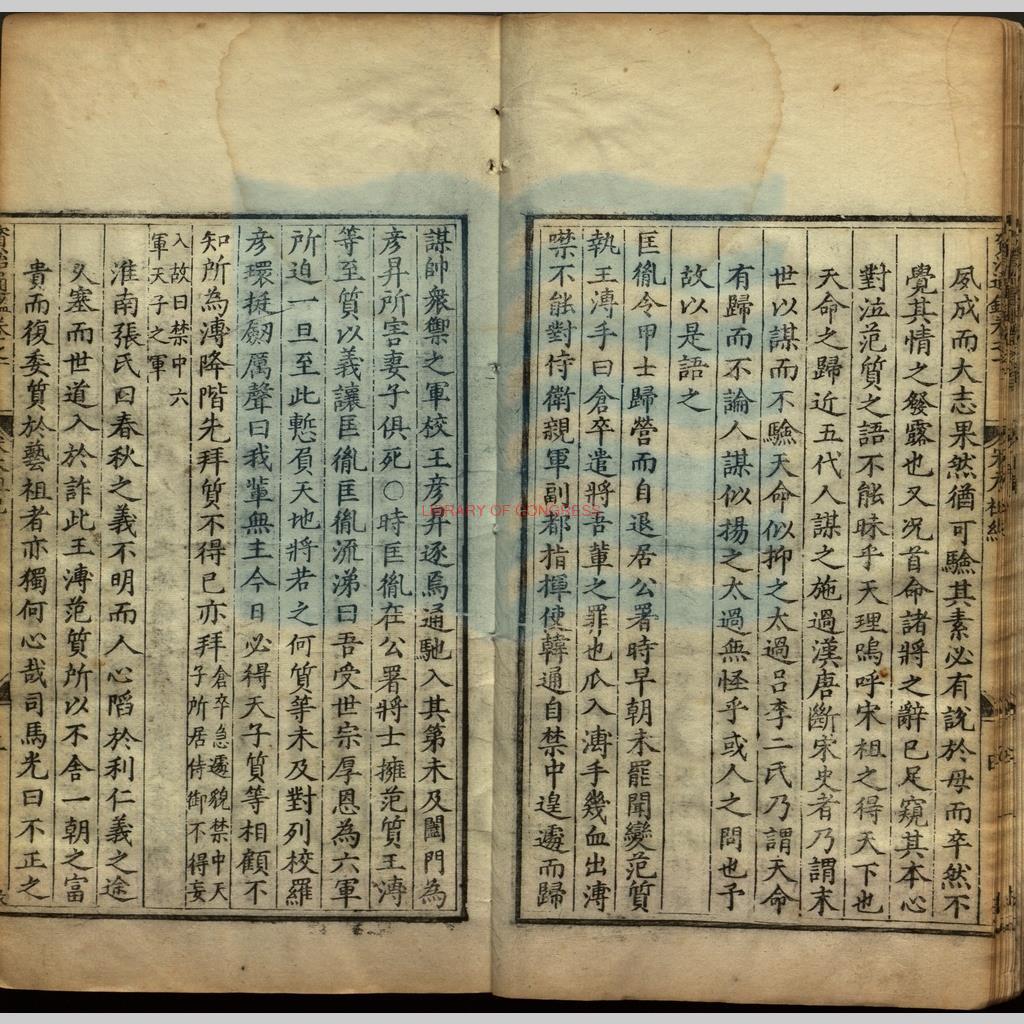 夙成而大志果然猶可驗其素必有說於母而卒然不
覺其情之發露也又况首命諸將之辭已足窺其本心
對泣范質之語不能昧乎天理嗚呼宋祖之得天下也
天命之歸近五代人謀之施過漢唐斷宋史者乃謂末
世以謀而不驗天命似抑之太過呂李二氏乃謂天命
有歸而不論人謀似揚之太過無怪乎或人之問也予
故以是語之
匡胤令甲士歸營而自退居公署時早朝未罷聞變范質
執王溥手曰倉卒遣將吾輩之罪也瓜入溥手幾血出溥
噤不能對侍衛親軍副都指揮使韓通自禁中遑遽而歸
謀帥衆禦之軍校王彥昇逐焉通馳入其第未及闔門為
彥昇所害妻子俱死○時匡胤在公署將士擁范質王溥
等至質以義讓匡胤匡胤流涕曰吾受世宗厚恩為六軍
所迫一旦至此慙負天地將若之何質等未及對列校羅
彥環挺劒厲聲曰我輩無主今日必得天子質等相顧不
知所為溥降階先拜質不得已亦拜
倉卒急遽貌禁中天
子所居侍御不得妄
入故曰禁中六
軍天子之軍
淮南張氏曰春秋之義不明而人心陷於利仁義之途
久塞而世道入於詐此王溥范質所以不舍一朝之富
貴而復委質於藝祖者亦獨何心哉司馬光曰不正之
LIBRARY OF CONGRESS